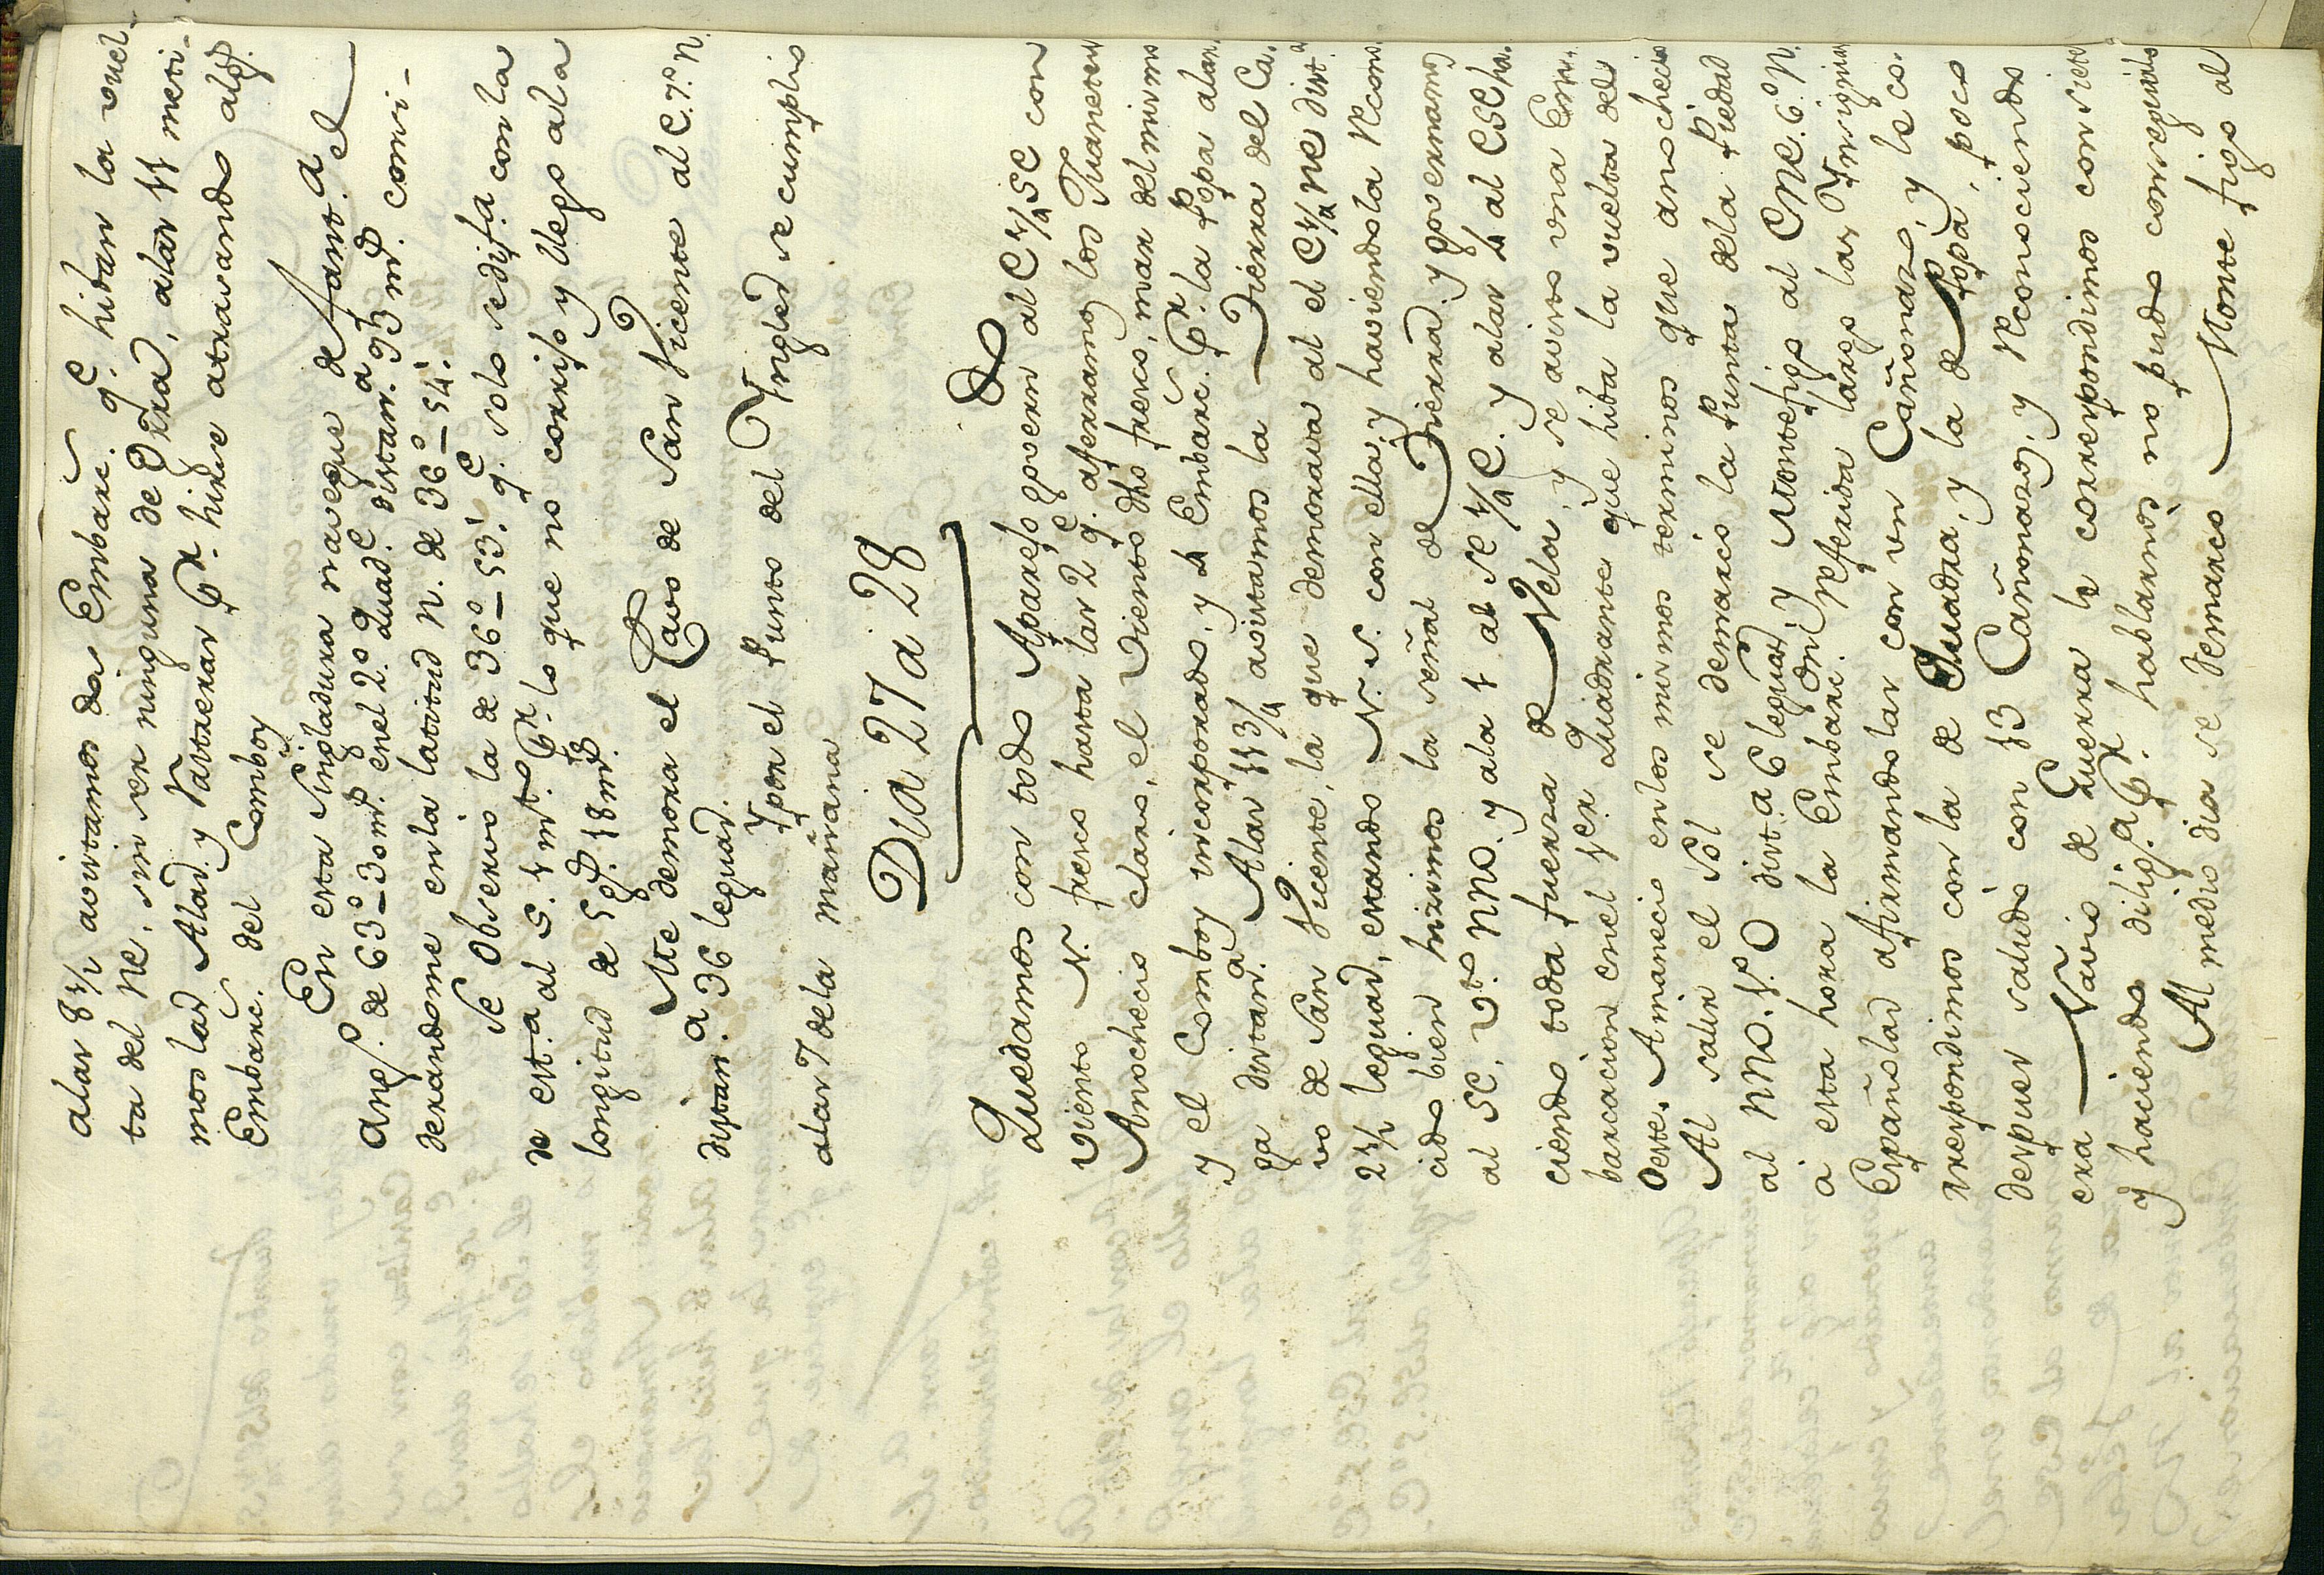 alas 8 1/2 avistamos dos Embarc.s q.e hiban la vuel-
ta del NE, sin ser ninguna de Grra, alas 11 meti-
mos las Alas y Rastreras P.r hirse atrasando alg.s
Embarc.s del Comboy
En esta Singladura navegue de fant.a el
Ang.o de 63°-30 m.s en el 2.o Quad.e distan.a 93 m.s consi-
derandome en la latitud N. de 36°-54'.
Se Observó la de 36°-53' q.e solo se dif.a con la
de est.a al S. 1 mt.o P.r lo que no corrijo y llego ala
longitud de 5 g.s 18 m.s
Me demora el Cavo de San Vicente al E. 7.o N.
distan.a 36 leguas.
Y por el Punto del Ingles se cumplio
alas 7 de la mañana
Dia 27 a 28
Quedamos con todo Aparejo govern.do al E 1/4 SE con
viento N. fresco hasta las 2 q.e aferramos los Juanetes
Anochecio claro, el Viento dho fresco, mar del mismo
y el Comboy incorporado, y 4 Embarc.s P.r la Popa alar-
ga distan.a Alas 11 3/4 avistamos la Tierra del Ca-
vo de San Vicente, la que demorava al el E 1/4 NE dist.a
2 1/2 leguas, estando N. S. con ella, y haviendola Recono-
cido bien hizimos la señal de Tierra y governamos
al SE, v.to NNO, y ala 1 al SE 1/4 E. y alas 4 al ESE ha-
ciendo toda fuerza de Vela, y se aviso una Em-
barcacion en el 1er Quadrante que hiba la vuelta del
Oeste. Amanecio en los mismos terminos que anochecio
Al salir el Sol se demarco la Punta de la Piedad
al NNO. 1.o O dist.a 6 leguas, y Montefigo al ENE. 6.o N.
à esta hora la Embarc.on referida largo las Insignias
Españolas afirmandolas con un Cañonazo, y le co-
rrespondimos con la de Quadra, y la de Popa, poco
despues saludò con 13 Cañonazos, y Reconociendo
era Navio de Guerra le correspondimos con siete
y haciendo dilig.a P.r hablarnos no pudo conseguirlo
Al medio dia se demarco Monte figo al